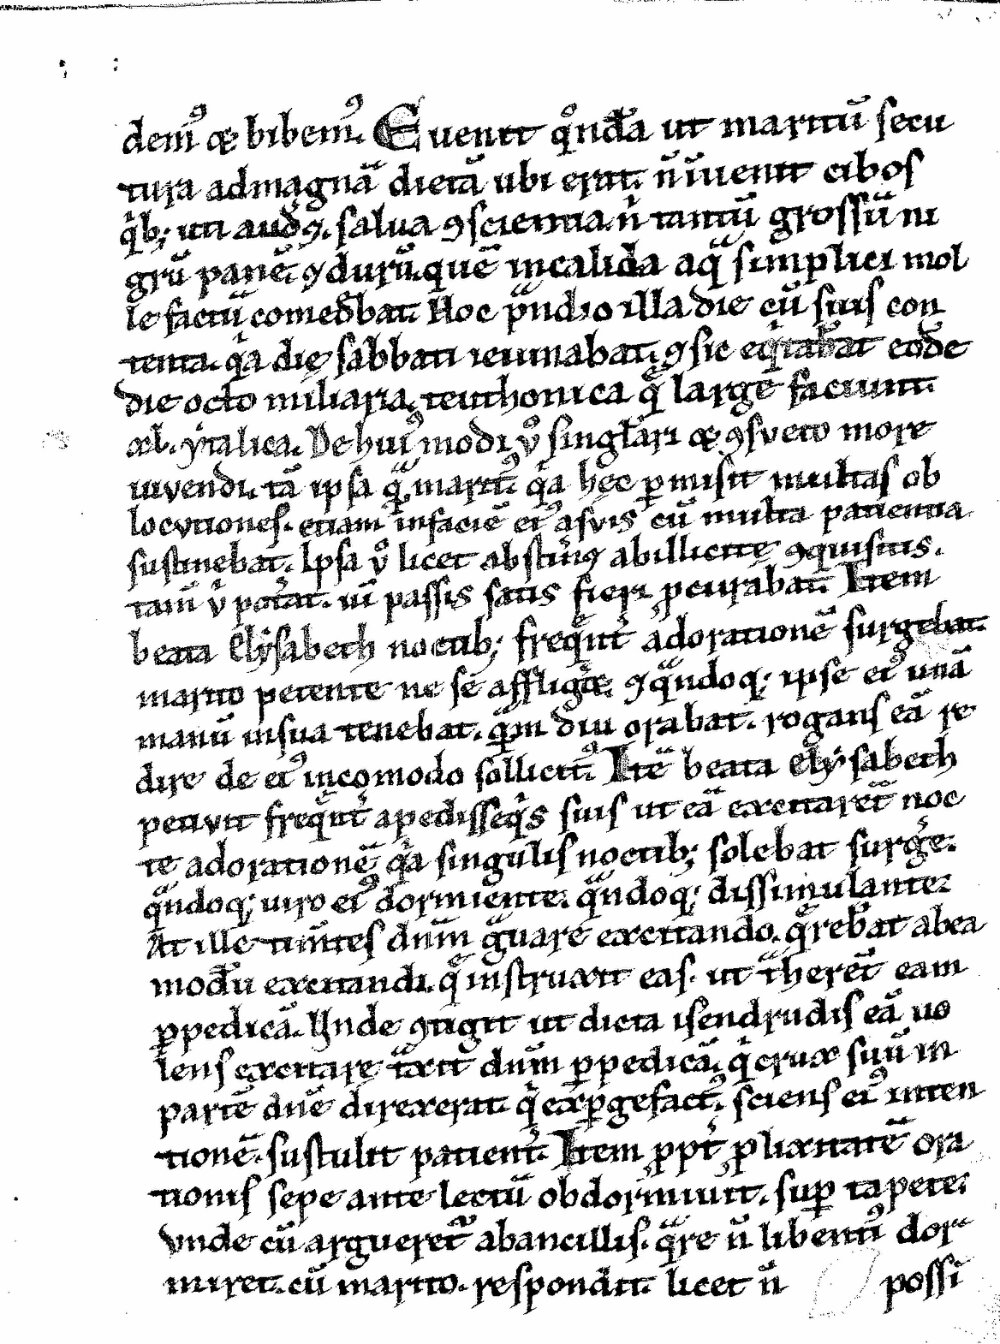 demꝰ ⁊ bibemꝰ. Euenit q̊nda̅ ut maritu̅ secu
tura ad magna̅ dieta̅ ubi erat. n̅ iuuenit cibos
qͥb; uti aud&ꝰ. salua ꝯscientia. nͥ tantu̅ grossu̅ ni
gru̅ pane̅. ⁊ duru̅. que̅ in calida aqͣ simplici mol
le factu̅ comedebat. Hoc pͣndio illa die cu̅ suis con
tenta. qͥa die sabbati ieiunabat. ⁊ sic eqͥtabat eode̅
die octo miliaria teuthonica qͣ large faciunt.
xl. ẏtalica. De huiꝰmodi ů singlari ⁊ ꝯsueto more
uiuendi. ta̅ ipsa qͣ maritꝰ. qͥa hec ꝑmisit multas ob
locutiones. etiam in facie̅ eiꝰ a suis cu̅ multa patientia
sustinebat. Ipsa ů licet abstin̅s ab illicite ꝯquisitis.
tam̅ ut pot̾at. iu̅ passis satis fieri ꝓcurabat. Item
beata Elẏsabeth noctib; freqͣnt̾ ad oratione̅ surgebat.
marito petente ne se affliget̾. ⁊ qͣndoq; ipse eiꝰ una̅
manu̅ in sua tenebat. qͣm diu orabat. rogans ea̅ re
dire de eiꝰ inco̅modo sollicitꝰ. Ite̅ beata elẏsabeth
petiuit freqͣnt̾ a pedisseqͥs suis ut ea̅ excitare̅t noc
te ad oratione̅. qͥa singulis noctib; solebat surge̾.
qͣndoq; uiro eiꝰ dormiente. qͣndoq; dissimulante.
At ille tim̅tes dn̅m gͣuare excitando. qͣrebat ab ea
modu̅ excitandi. qͣ instruxit eas. ut t̅here̅t eam
ꝑ pedica̅. Unde ꝯtigit ut dicta isendrudis ea̅ uo
lens excitare t̅xit dn̅m ꝑ pedica̅. qͥ crux suu̅ in
parte̅ dn̅e direxerat. qͥ exꝑgefactꝰ. sciens eiꝰ inten
tione̅. sustulit patient̾. Item ꝓpt̾ ꝓlixitate̅ ora
tionis sepe ante lectu̅ obdormiuit. suꝑ tapete.
Vnde cu̅ arguere̅t̾ ab ancillis. qͣre n̅ libentiꝰ dor
miret. cu̅ marito. respondit. licet n̅ possi̅